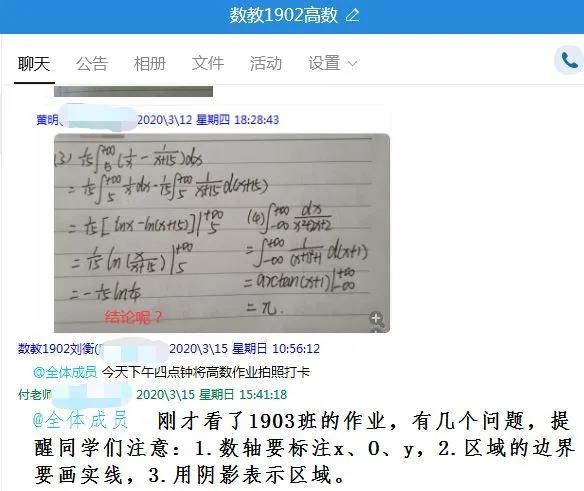 数教1902高数
聊天 公告 相册 文件 活动 设置
黄明 2020\3\12 星期四 18:28:43
(3) 1/15∫₅^{+∞}(1/x - 1/(x+15))dx
= 1/15∫₅^{+∞} 1/x dx - 1/15∫₅^{+∞} 1/(x+15) d(x+15)
= 1/15 [lnx - ln(x+15)]|₅^{+∞}
= 1/15 ln(x/(x+15))|₅^{+∞}
= -1/15 ln 1/4
结论呢？
(4) ∫_{-∞}^{+∞} dx/(x²+2x+2)
= ∫_{-∞}^{+∞} 1/((x+1)²+1) d(x+1)
= arctan(x+1)|_{-∞}^{+∞}
= π.
数教1902刘衡( 2020\3\15 星期日 10:56:12
@全体成员 今天下午四点钟将高数作业拍照打卡
付老师 2020\3\15 星期日 15:41:18
@全体成员 刚才看了1903班的作业，有几个问题，提
醒同学们注意：1.数轴要标注x、O、y，2.区域的边界
要画实线，3.用阴影表示区域。